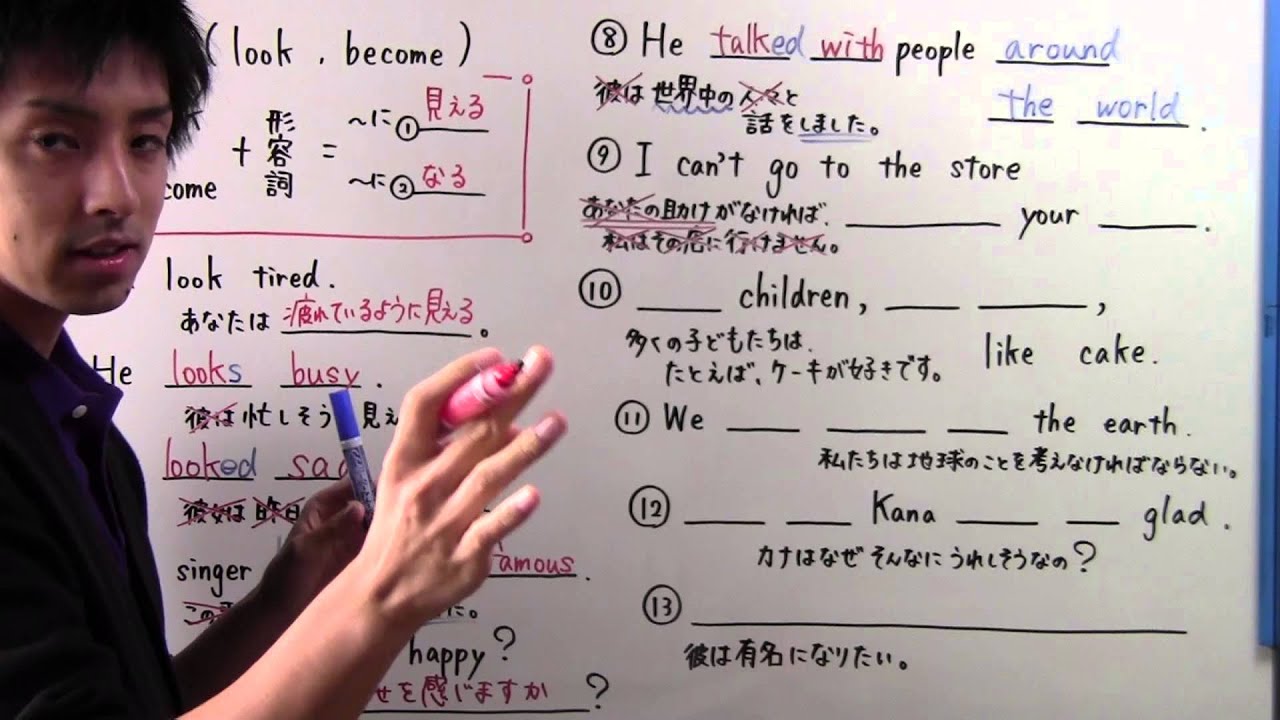 (look, become)
見える
形容詞
～に①
+ =
come
～に② なる
look tired.
あなたは 疲れているように見える。
He looks busy.
彼は忙しそう 見え
looked sad
彼女は 昨日
singer famous.
この
に。
happy?
せを感じますか?
⑧ He talked with people around
the world.
彼は 世界中の 人々と
話をしました。
⑨ I can't go to the store
あなたの助けがなければ、 ____ your ____.
私はその店に行けません。
⑩ ____ children, ____ ____,
like cake.
多くの子どもたちは、
たとえば、ケーキが好きです。
⑪ We ____ ____ ____ the earth.
私たちは地球のことを考えなければならない。
⑫ ____ ____ Kana ____ ____ glad.
カナはなぜ そんなに うれしそうなの?
⑬ ____
彼は有名になりたい。